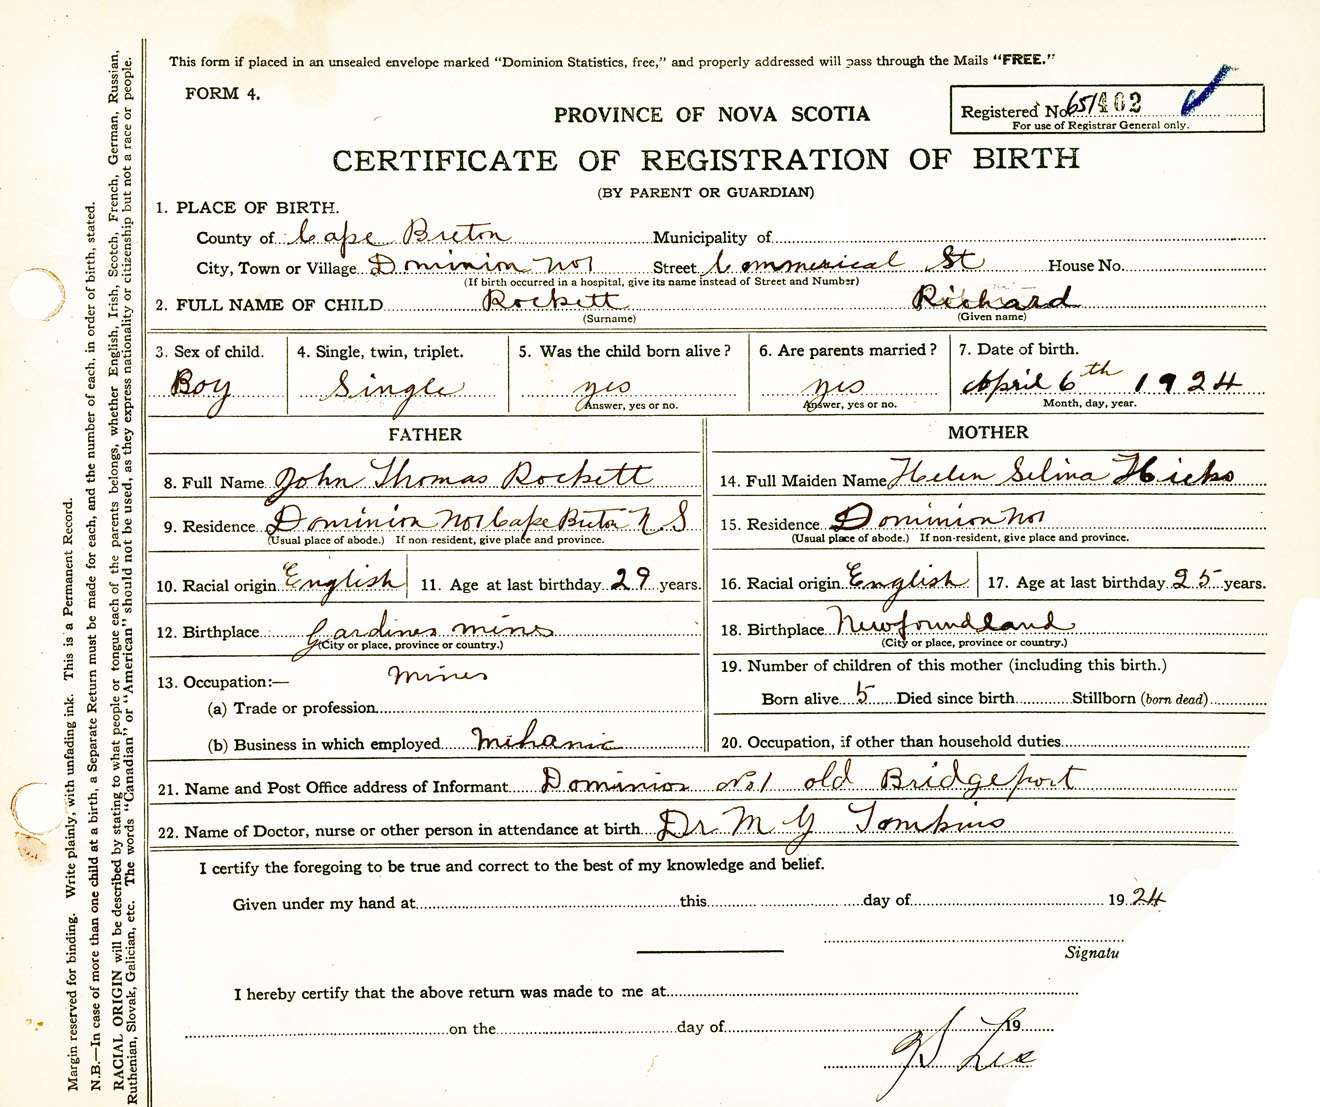 This form if placed in an unsealed envelope marked “Dominion Statistics, free,” and properly addressed will pass through the Mails “FREE.”
FORM 4.
PROVINCE OF NOVA SCOTIA
Registered No. 651402
For use of Registrar General only.
CERTIFICATE OF REGISTRATION OF BIRTH
(BY PARENT OR GUARDIAN)
1. PLACE OF BIRTH.
County of Cape Breton Municipality of
City, Town or Village Dominion No1 Street Commerical St House No.
(If birth occurred in a hospital, give its name instead of Street and Number)
2. FULL NAME OF CHILD Rockett Richard
(Surname) (Given name)
3. Sex of child. 4. Single, twin, triplet. 5. Was the child born alive? 6. Are parents married? 7. Date of birth.
Boy Single yes yes April 6th 1924
Answer, yes or no. Answer, yes or no. Month, day, year.
FATHER MOTHER
8. Full Name John Thomas Rockett 14. Full Maiden Name Helen Selina Hicks
9. Residence Dominion No1 Cape Breton N S 15. Residence Dominion No1
(Usual place of abode.) If non-resident, give place and province. (Usual place of abode.) If non-resident, give place and province.
10. Racial origin English 11. Age at last birthday 29 years. 16. Racial origin English 17. Age at last birthday 25 years.
12. Birthplace Gardines mines 18. Birthplace Newfoundland
(City or place, province or country.) (City or place, province or country.)
13. Occupation:— 19. Number of children of this mother (including this birth.)
(a) Trade or profession Born alive 5 Died since birth Stillborn (born dead)
(b) Business in which employed Mihanic 20. Occupation, if other than household duties
21. Name and Post Office address of Informant Dominion No.1 old Bridgeport
22. Name of Doctor, nurse or other person in attendance at birth Dr M Y Tompkins
I certify the foregoing to be true and correct to the best of my knowledge and belief.
Given under my hand at this day of 1924
Signatu
I hereby certify that the above return was made to me at
on the day of 19
Margin reserved for binding. Write plainly, with unfading ink. This is a Permanent Record.
N.B.—In case of more than one child at a birth, a Separate Return must be made for each, and the number of each, in order of birth, stated.
RACIAL ORIGIN will be described by stating to what people or tongue each of the parents belongs, whether English, Irish, Scotch, French, German, Russian,
Ruthenian, Slovak, Galician, etc. The words “Canadian” or “American” should not be used, as they express nationality or citizenship but not a race or people.